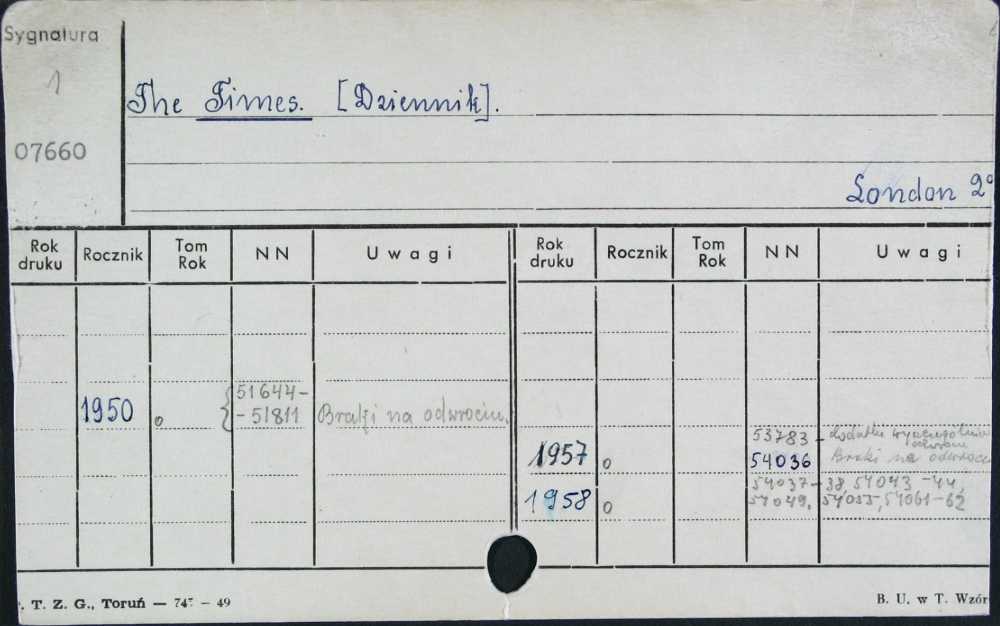 Sygnatura
1
07660
The Times. [Dziennik].
London 2°
Rok druku Rocznik Tom Rok NN Uwagi Rok druku Rocznik Tom Rok NN Uwagi
1950 o { 51644-
- 51811 Braki na odwrociu.
53783 - dodatki
1957 o 54036 Braki na odwrociu
54037-38, 54043-44,
1958 o 54049, 54055, 54061-62
. T. Z. G., Toruń — 74 — 49
B. U. w T. Wzór